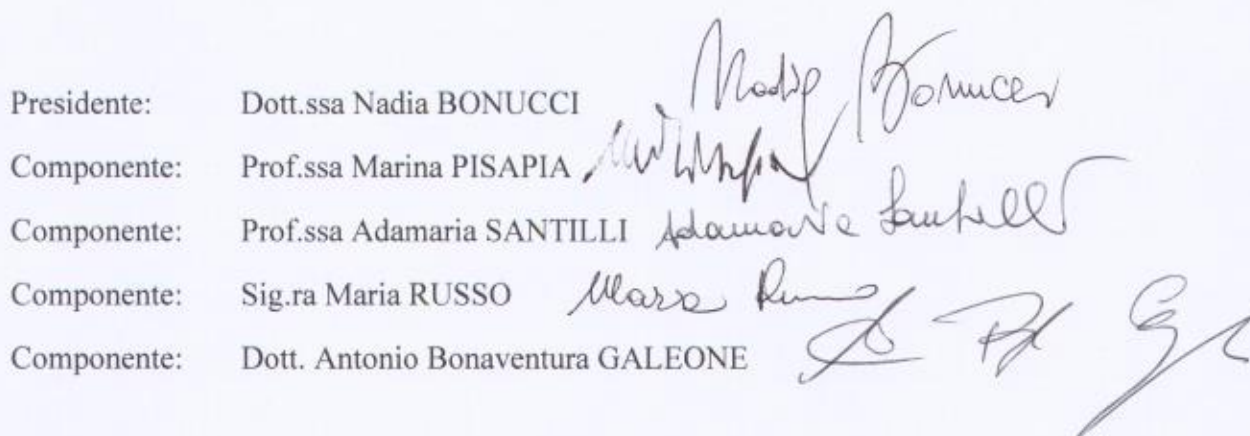 Presidente: Dott.ssa Nadia BONUCCI Nadia Bonucci
Componente: Prof.ssa Marina PISAPIA
Componente: Prof.ssa Adamaria SANTILLI Adamaria Santilli
Componente: Sig.ra Maria RUSSO Maria Russo
Componente: Dott. Antonio Bonaventura GALEONE